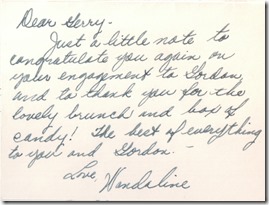 Dear Gerry-
Just a little note to
congratulate you again on
your engagement to Gordon,
and to thank you for the
lovely brunch and box of
candy! The best of everything
to you and Gordon.-
Love, Wandaline